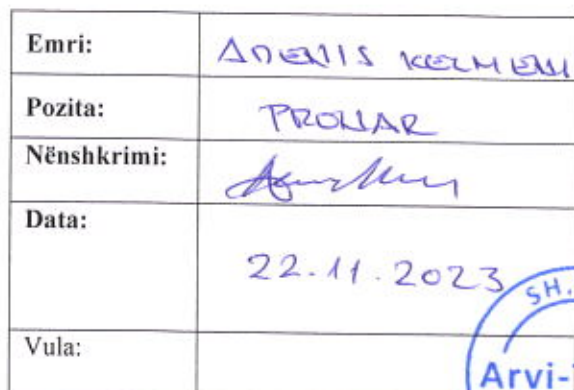 Emri: ADENIS KELMENI
Pozita: PRONAR
Nënshkrimi:
Data: 22.11.2023
SH.
Vula:
Arvi-